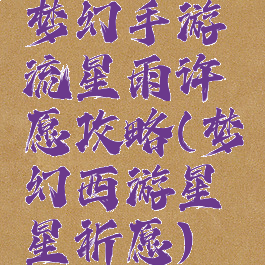 梦幻手游
流星雨许
愿攻略(梦
幻西游星
星祈愿)